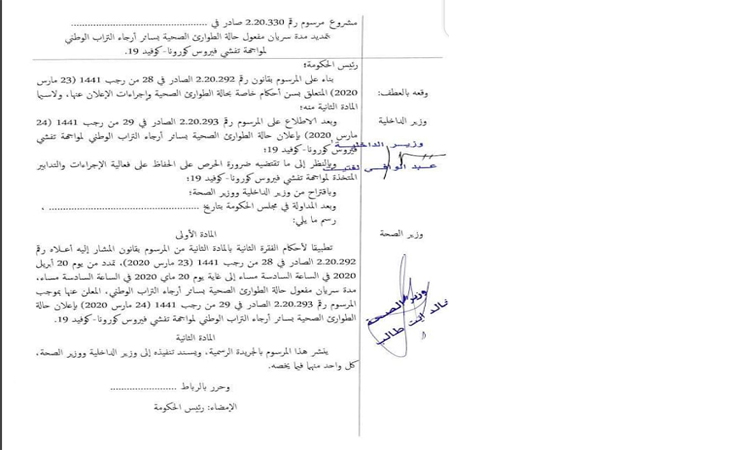 مشروع مرسوم رقم 2.20.330 صادر في ................................
بتمديد مدة سريان مفعول حالة الطوارئ الصحية بسائر أرجاء التراب الوطني
لمواجهة تفشي فيروس كورونا- كوفيد 19.
رئيس الحكومة؛
بناء على المرسوم بقانون رقم 2.20.292 الصادر في 28 من رجب 1441 (23 مارس
2020) المتعلق بسن أحكام خاصة بحالة الطوارئ الصحية وإجراءات الإعلان عنها، ولاسيما
المادة الثانية منه؛
وبعد الاطلاع على المرسوم رقم 2.20.293 الصادر في 29 من رجب 1441 (24
مارس 2020) بإعلان حالة الطوارئ الصحية بسائر أرجاء التراب الوطني لمواجهة تفشي
فيروس كورونا- كوفيد 19؛
وبالنظر إلى ما تقتضيه ضرورة الحرص على الحفاظ على فعالية الإجراءات والتدابير
المتخذة لمواجهة تفشي فيروس كورونا- كوفيد 19؛
وباقتراح من وزير الداخلية ووزير الصحة؛
وبعد المداولة في مجلس الحكومة بتاريخ ................................ ،
رسم ما يلي:
المادة الأولى
تطبيقا لأحكام الفقرة الثانية بالمادة الثانية من المرسوم بقانون المشار إليه أعلاه رقم
2.20.292 الصادر في 28 من رجب 1441 (23 مارس 2020)، تمدد من يوم 20 أبريل
2020 في الساعة السادسة مساء إلى غاية يوم 20 ماي 2020 في الساعة السادسة مساء،
مدة سريان مفعول حالة الطوارئ الصحية بسائر أرجاء التراب الوطني، المعلن عنها بموجب
المرسوم رقم 2.20.293 الصادر في 29 من رجب 1441 (24 مارس 2020) بإعلان حالة
الطوارئ الصحية بسائر أرجاء التراب الوطني لمواجهة تفشي فيروس كورونا- كوفيد 19.
المادة الثانية
ينشر هذا المرسوم بالجريدة الرسمية، ويسند تنفيذه إلى وزير الداخلية ووزير الصحة،
كل واحد منهما فيما يخصه.
وحرر بالرباط ......................
الإمضاء: رئيس الحكومة
وقعه بالعطف:
وزير الداخلية
وزير الداخلية
عبد الوافي لفتيت
وزير الصحة
وزير الصحة
خالد ايت طالب